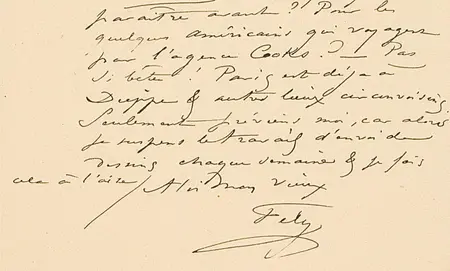 paraître avant ?! Pour les
quelques américains qui voyagent
par l'agence Cooks ? — Pas
si bête ! Paris est déja à
Dieppe & autres lieux circonvoisins.
Seulement préviens moi, car alors
je suspens le travail d'envoi de
dessins chaque semaine & je fais
cela à l'aise / A toi mon vieux
Fely